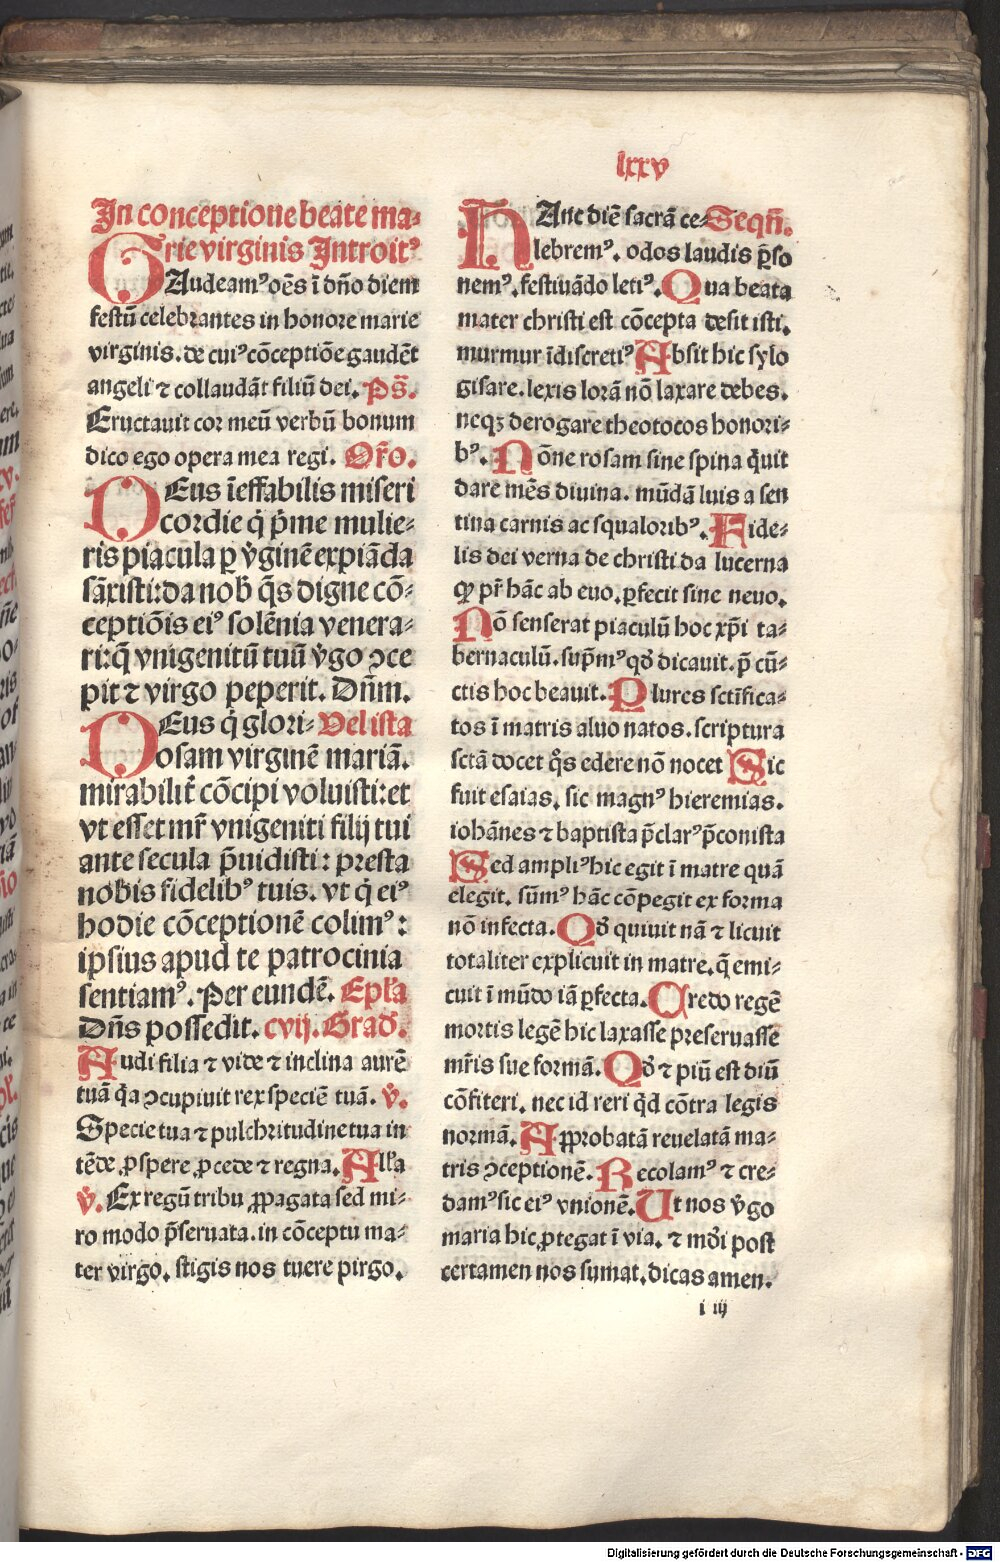 lxxv
In conceptione beate ma⸗
rie virginis Introitꝰ
GAudeamꝰ oēs ī dn̄o diem
festū celebrantes in honore marie
virginis. de cuiꝰ cōceptiōe gaudēt
angeli ⁊ collaudāt filiū dei. Ps̄.
Eructauit cor meū verbū bonum
dico ego opera mea regi. Or̄o.
DEus īeffabilis miseri
cordie q̇ p̄me mulie⸗
ris piacula ꝑ v̇ginē expiāda
sāxisti: da nob̄ q̄s digne cō⸗
ceptiōis eiꝰ solēnia venera⸗
ri: q̄ vnigenitū tuū v̇go ɔce
pit ⁊ virgo peperit. Dn̄m.
DEus q̇ glori⸗ Vel ista
osam virginē mariā.
mirabilit̄ cōcipi voluisti: et
vt esset mr̄ vnigeniti filij tui
ante secula p̄uidisti: presta
nobis fidelibꝰ tuis. vt q̇ eiꝰ
hodie cōceptionē colimꝰ:
ipsius apud te patrocinia
sentiamꝰ. Per eundē. Epl̄a
Dn̄s possedit. cvij. Grad̄.
Audi filia ⁊ vide ⁊ inclina aurē
tuā q̇a ɔcupiuit rex speciē tuā. v̇.
Specie tua ⁊ pulchritudine tua in
tēde ꝓspere ꝓcede ⁊ regna. All̄a
v̇. Ex regū tribu ꝓpagata sed mi⸗
ro modo p̄seruata. in cōceptu ma⸗
ter virgo. stigis nos tuere pirgo.
HAnc diē sacrā ce⸗ Seqn̄.
lebremꝰ. odos laudis ꝑso
nemꝰ. festiuādo letiꝰ. Qua beata
mater christi est cōcepta desit isti.
murmur īdiscretiꝰ Absit hic sylo
gisare. lexis lorā nō laxare debes.
neqꝫ derogare theotocos honori⸗
bꝰ. Nōne rosam sine spina q̇uit
dare mēs diuina. mūdā luis a sen
tina carnis ac squaloribꝰ. Fide⸗
lis dei verna de christi da lucerna
ꝙ pr̄ hāc ab euo. ꝑfecit sine neuo.
Nō senserat piaculū hoc xp̄i ta⸗
bernaculū. sup̄mꝰ qd̄ dicauit. p̄ cū⸗
ctis hoc beauit. Plures sctīfica⸗
tos ī matris aluo natos. scriptura
sctā docet q̇s edere nō nocet Sic
fuit esaias. sic magnꝰ hieremias.
iohānes ⁊ baptista p̄clarꝰ p̄conista
Sed ampliꝰ hic egit ī matre quā
elegit. sūmꝰ hāc cōpegit ex forma
nō infecta. Qd̄ quiuit nā ⁊ licuit
totaliter explicuit in matre. q̄ emi⸗
cuit ī mūdo iā ꝑfecta. Credo regē
mortis legē hic laxasse preseruasse
mr̄is sue formā. Qd̄ ⁊ piū est diū
cōfiteri. nec id reri q̇d cōtra legis
normā. Approbatā reuelatā ma⸗
tris ɔceptionē. Recolamꝰ ⁊ cre⸗
damꝰ sic eiꝰ vnionē. Ut nos v̇go
maria hic ꝓtegat ī via. ⁊ mōi post
certamen nos sumat. dicas amen.
i iij
Digitalisierung gefördert durch die Deutsche Forschungsgemeinschaft - DFG